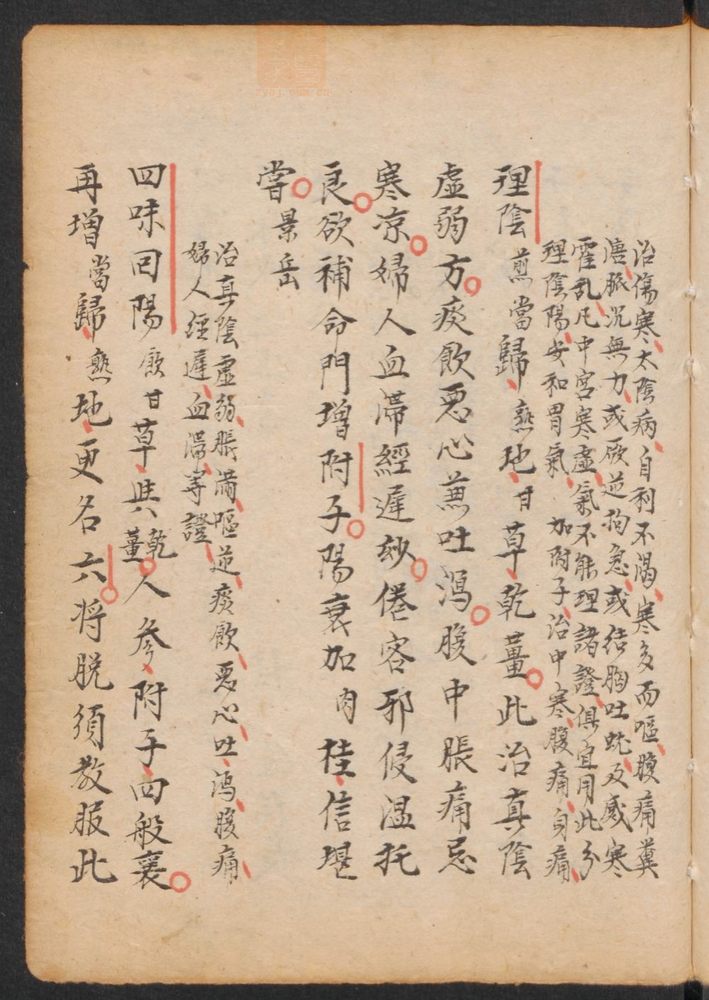 治傷寒太陰病自利不渴寒多而嘔腹痛糞
溏脈沉無力或厥逆拘急或结胸吐蚘及感寒
霍乱凡中宮寒虛氣不能理諸證俱宜用此多
理陰陽安和胃氣 加附子治中寒腹痛身痛
理陰煎當歸熟地甘草乾薑此治真陰
虛弱方痰飲惡心蕪吐瀉腹中脹痛忌
寒凉婦人血滯經遲紗倦容邪侵温托
良欲補命門增附子陽衰加肉桂信堪
嘗景岳
治真陰虛弱脹滿嘔逆痰飲惡心吐瀉腹痛
婦人經遲血滯等證
四味回陽飲甘草與乾薑人參附子四般襄
再增當歸熟地更名六将脱須教服此